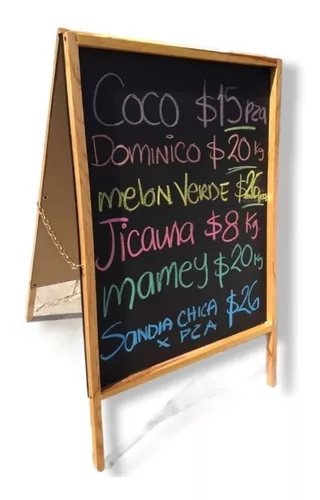 Coco $15 pza
Dominico $20 Kg
melon verde $26
Jicama $8 Kg.
mamey $20 Kg
Sandia chica $26
x PZA